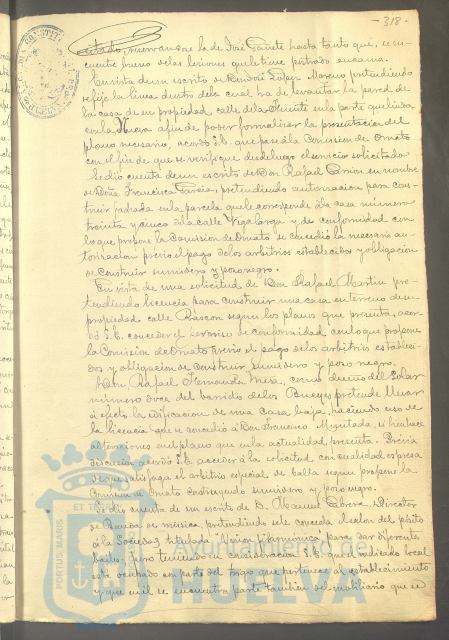 - 318 -
citado, reservandose la de José Gañete hasta tanto que, se en-
cuentre bueno de las lesiones que le tiene postrado en cama.
En vista de un escrito de Don José Lopez Moreno pretendiendo
se fije la linea dentro de la cual ha de levantar la pared de
la casa de su propiedad, calle de la Fuente en la parte que linda
con la Nueva a fin de poder formalizar la presentacion del
plano necesario, acordó S.E. que pase á la Comision de Ornato
con el fin de que se verifique desde luego el servicio solicitado.
Se dio cuenta de un escrito de Don Rafael Carrion en nombre
de Doña Francisca Garcia, pretendiendo autorizacion para cons-
truir fachada en la parcela que le corresponde á la casa número
treinta y cinco de la calle Vega larga y de conformidad con
lo que propone la Comision de Ornato se concedió la necesaria au-
torizacion previo el pago de los arbitrios establecidos y obligacion
de construir sumidero y pozo negro.
En vista de una solicitud de Don Rafael Martin pre-
tendiendo licencia para construir una casa en terreno de su
propiedad calle Rascon segun los planos que presenta, acor-
dó S.E. conceder el permiso de conformidad, con lo que propone
la Comision de Ornato previo el pago de los arbitrios estableci-
dos y obligacion de construir sumidero y pozo negro.
A Don Rafael Fernandez Mesa, como dueño del Solar
número doce del barrido de los Bueyes pretende llevar
á efecto la edificacion de una casa baja, haciendo uso de
la licencia que se concedió á Don Francisco é introduce
alteraciones en el plano que en la actualidad presenta. Previa
discusion acordó S.E. acceder á la solicitud con cualidad expresa
de que satisfaga el arbitrio especial de balla segun propone la
Comision de Ornato construyendo sumidero y pozo negro.
Se dio cuenta de un escrito de D. Manuel Cabrera, Director
de Banda de música, pretendiendo se le conceda el salon del pósito
á la Sociedad titulada "Union Filarmónica" para dar diferentes
bailes; pero teniendo en consideracion de que el indicado local
está ocupado en parte del trigo que pertenece al establecimiento
y que en él se encuentra parte tambien del mobiliario que se
Ayuntamiento de
HUELVA
PORTUS MARIS
ET TERRAE